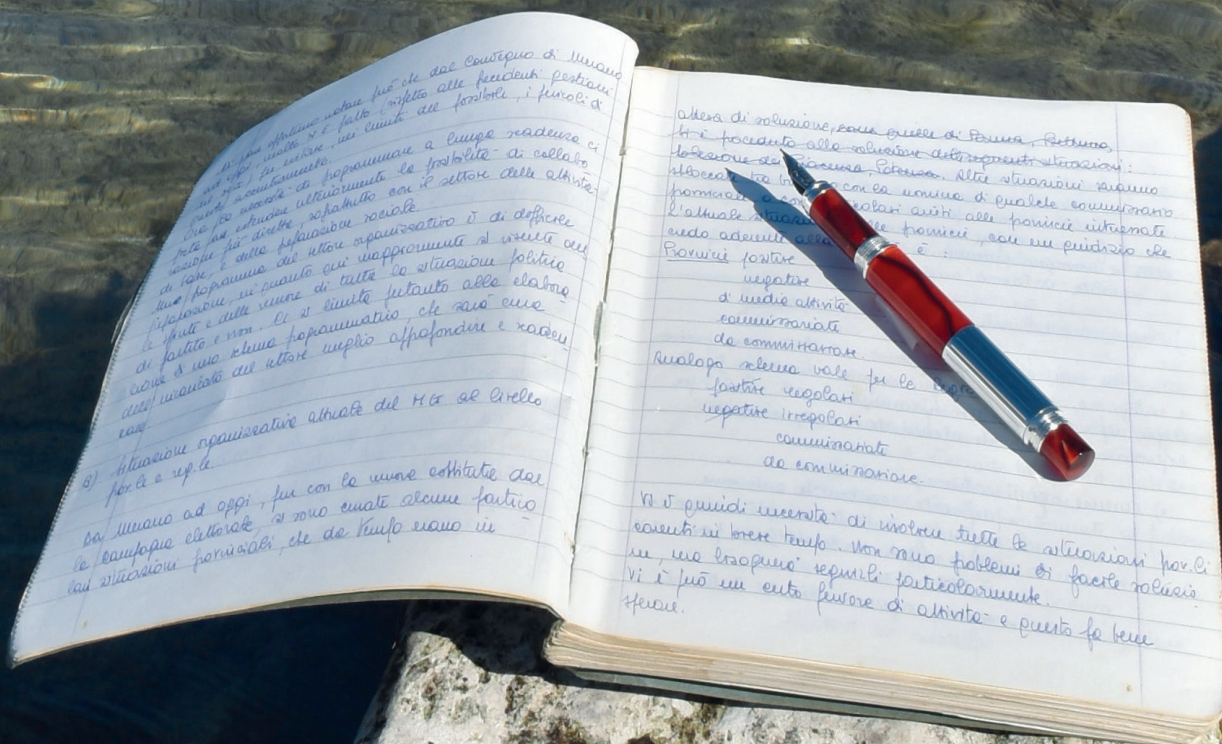 notare può che dal Convegno di Merano
molto si è fatto rispetto alle precedenti gestioni
nei limiti del possibile, i pericoli di
Ora la necessità di programmare a lunga scadenza ci
porta far estendere ulteriormente la possibilità di collabo
razione più diretta, soprattutto con il settore delle attività
di base, e della preparazione sociale.
programma del settore organizzativo è di difficile
preparazione, in quanto qui maggiormente si risente del
le spinte e delle remore di tutta la situazione politica
di partito e non. Ci si limita pertanto alla elabora
zione di uno schema programmatico, che sarà cura
dell'incaricato del settore meglio approfondire e
B) Situazione organizzativa attuale del MG al livello
prov.le e reg.le.
Da Merano ad oggi, pur con la remora costituita dal
la campagna elettorale, si sono create alcune partico
lari situazioni provinciali, che da tempo erano in
attesa di soluzione, come quelle di Parma,
Si è proceduto alla soluzione delle seguenti situazioni:
Piacenza, Potenza. Altre situazioni saranno
con la nomina di qualche commissario
provinciale a avuti alle provincie interessate
l'attuale province, con un giudizio che
credo aderente alla è:
Provincie positive
negative
d'media attività
commissariate
da commissariare
Analogo schema vale per le
positive regolari
negative irregolari
commissariate
da commissariare.
Vi è quindi necessità di risolvere tutte le situazioni prov.li
carenti in breve tempo. Non sono problemi di facile soluzio
ne ma bisognerà seguirli particolarmente.
Vi è può un certo fervore di attività e questo fa bene
sperare.